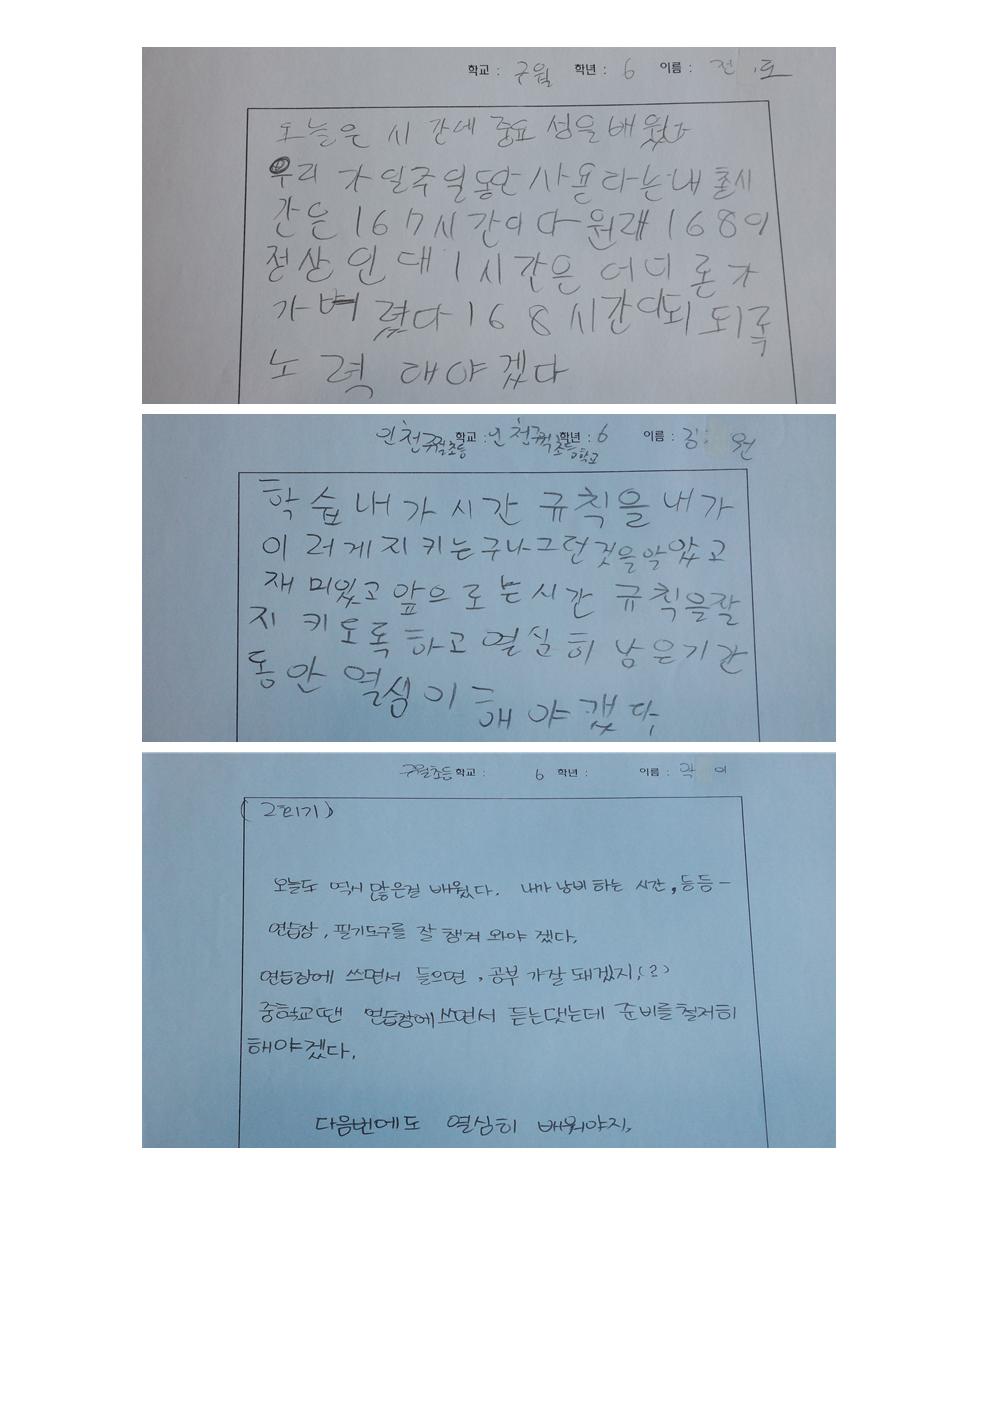 학교 : 구월 학년 : 6 이름 : 전
오늘은 시간에 중요성을 배웠다
우리가 일주일동안 사용라는내 총시
간은 167시간이다 원래 168이
정상인대 1시간은 어디론가
가벼렸다 168시간이되 되록
노력 해야겠다
인천구월초등 학교 : 인천구월초등학교 학년 : 6 이름 : 김 원
학습내가 시간 규칙을 내가
이러게지키는구나그런것을 알았고
재미있고 앞으로는시간 규칙을잘
지키도록하고 열심히 남은기간
동안 열심이 해야갰다
구월초등 학교 : 6 학년 : 이름 : 곽 이
(2회기)
오늘도 역시 많은걸 배웠다. 내가 낭비하는 시간, 등등-
연습장, 필기도구를 잘 챙겨 와야 겠다.
연습장에 쓰면서 들으면, 공부 가잘 돼겠지,(?)
중학교땐 연습장에쓰면서 듣는댓는데 준비를철저히
해야겠다.
다음번에도 열심히 배워야지,